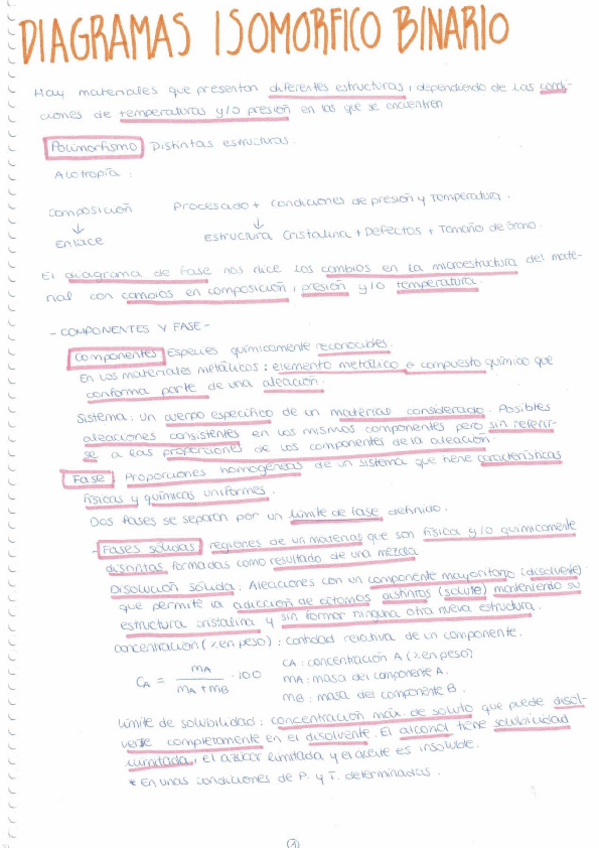 DIAGRAMAS ISOMORFICO BINARIO
Hay materiales que presentan diferentes estructuras, dependiendo de las condi-
ciones de temperaturas y/o presión en las que se encuentren
Polimorfismo Distintas estructuras.
Alotropía:
Composición Procesado + condiciones de presión y Temperatura.
↓ ↓
Enlace estructura Cristalina + Defectos + Tamaño de Grano.
El diagrama de Fase nos dice los cambios en la microestructura del mate-
rial con cambios en composición, presión y/o temperatura.
- COMPONENTES Y FASE -
Componentes Especies químicamente reconocibles.
En los materiales metálicos: elemento metálico o compuesto químico que
conforma parte de una aleación.
Sistema: un cuerpo específico de un material considerado. Posibles
aleaciones consistentes en los mismos componentes pero sin referir-
se a las proporciones de los componentes de la aleación
Fase Proporciones homogéneas de un sistema que tiene características
físicas y químicas uniformes.
Dos fases se separan por un límite de fase definido.
- Fases sólidas regiones de un material que son física y/o químicamente
distintas formadas como resultado de una mezcla
Disolución sólida: Aleaciones con un componente mayoritario (disolvente)
que permite la adicción de átomos distintos (soluto) manteniendo su
estructura cristalina y sin formar ninguna otra nueva estructura.
concentración (% en peso): cantidad relativa de un componente.
CA = mA / (mA + mB) · 100
CA: concentración A (% en peso)
mA: masa del componente A.
mB: masa del componente B.
Límite de solubilidad: concentración máx. de soluto que puede disol-
verse completamente en el disolvente. El alcohol tiene solubilidad
ilimitada, el azúcar limitada y el aceite es insoluble.
* En unas condiciones de P. y T. determinadas.
1